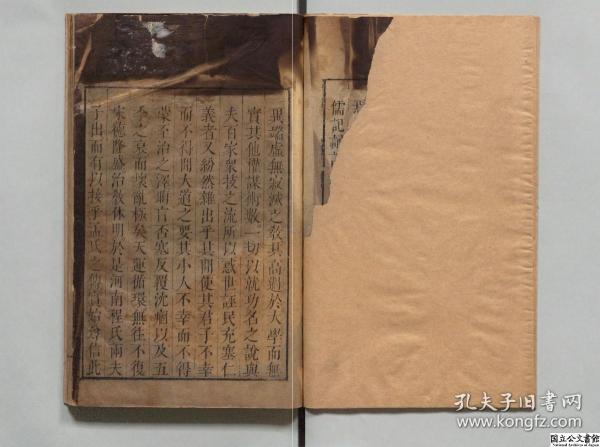 儒記誦
異端虛無寂滅之敎其高過於大學而無
實其他權謀術數一切以就功名之說與
夫百家衆技之流所以惑世誣民充塞仁
義者又紛然雜出乎其間使其君子不幸
而不得聞大道之要其小人不幸而不得
蒙至治之澤晦盲否塞反覆沈痼以及五
季之衰而壞亂極矣天運循環無往不復
宋德隆盛治敎休明於是河南程氏兩夫
子出而有以接乎孟氏之傳實始尊信此
孔夫子旧书网
www.kongfz.com
国立公文書館
National Archives of Japan